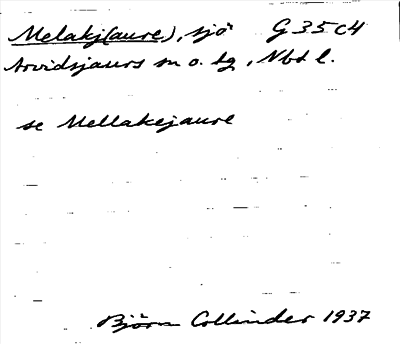 Melakj(aure), sjö G 35 c4
Arvidsjaurs sn o. tg, Nbt l.
se Mellakejaure
Björn Collinder 1937